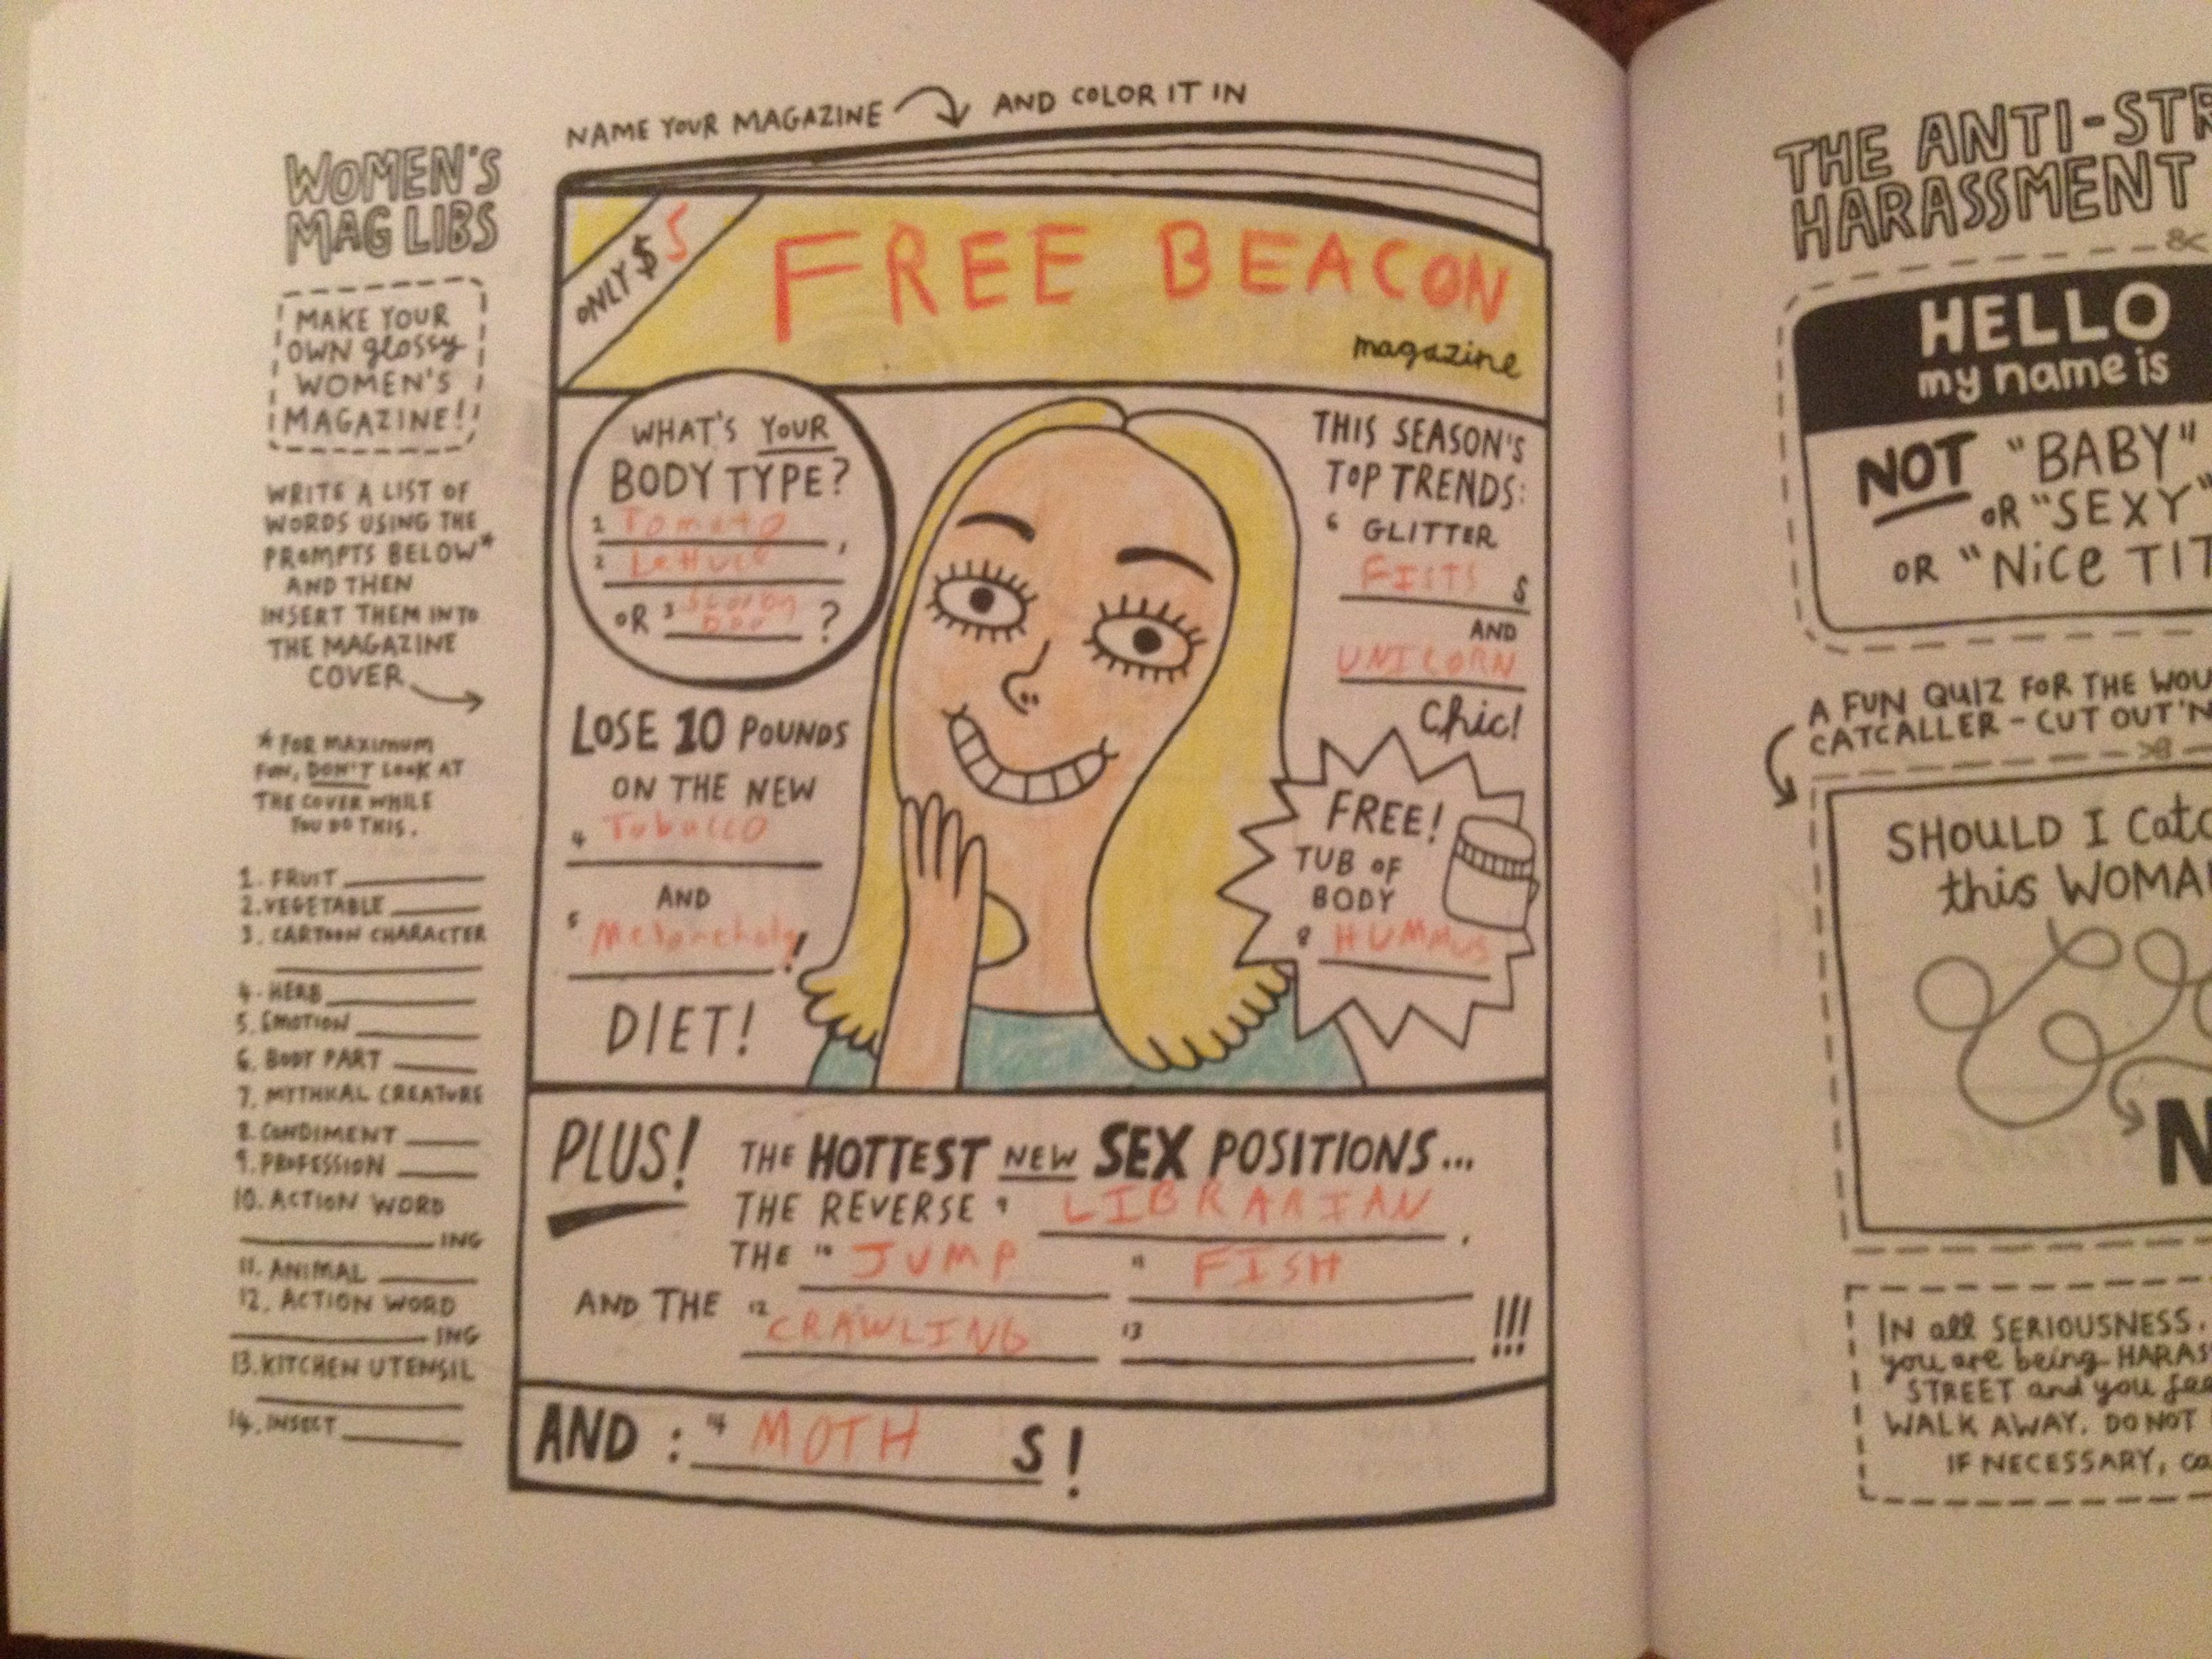 NAME YOUR MAGAZINE AND COLOR IT IN
WOMEN'S
MAG LIBS
MAKE YOUR
OWN glossy
WOMEN'S
MAGAZINE!
WRITE A LIST OF
WORDS USING THE
PROMPTS BELOW*
AND THEN
INSERT THEM INTO
THE MAGAZINE
COVER
* FOR MAXIMUM
FUN, DON'T LOOK AT
THE COVER WHILE
YOU DO THIS.
1. FRUIT
2. VEGETABLE
3. CARTOON CHARACTER
4. HERB
5. EMOTION
6. BODY PART
7. MYTHICAL CREATURE
8. CONDIMENT
9. PROFESSION
10. ACTION WORD
ING
11. ANIMAL
12. ACTION WORD
ING
13. KITCHEN UTENSIL
14. INSECT
ONLY $ 5
FREE BEACON
magazine
WHAT'S YOUR
BODY TYPE?
1 Tomato,
2 Lettuce
OR 3 Scooby
Doo ?
LOSE 10 POUNDS
ON THE NEW
4 Tobacco
AND
5 Melancholy!
DIET!
THIS SEASON'S
TOP TRENDS:
6 GLITTER
FISTS S
AND
UNICORN
Chic!
FREE!
TUB OF
BODY
8 HUMMUS
PLUS! THE HOTTEST NEW SEX POSITIONS...
THE REVERSE 9 LIBRARIAN,
THE 10 JUMP 11 FISH
AND THE 12 CRAWLING 13 !!!
AND: 14 MOTH S!
THE ANTI-STR
HARASSMENT
HELLO
my name is
NOT "BABY"
OR "SEXY"
OR "NiCe TIT
A FUN QUIZ FOR THE WOU
CATCALLER - CUT OUT 'N
SHOULD I Catc
this WOMA
N
IN all SERIOUSNESS.
you are being HARAS
STREET and you fee
WALK AWAY. DO NOT
IF NECESSARY, ca